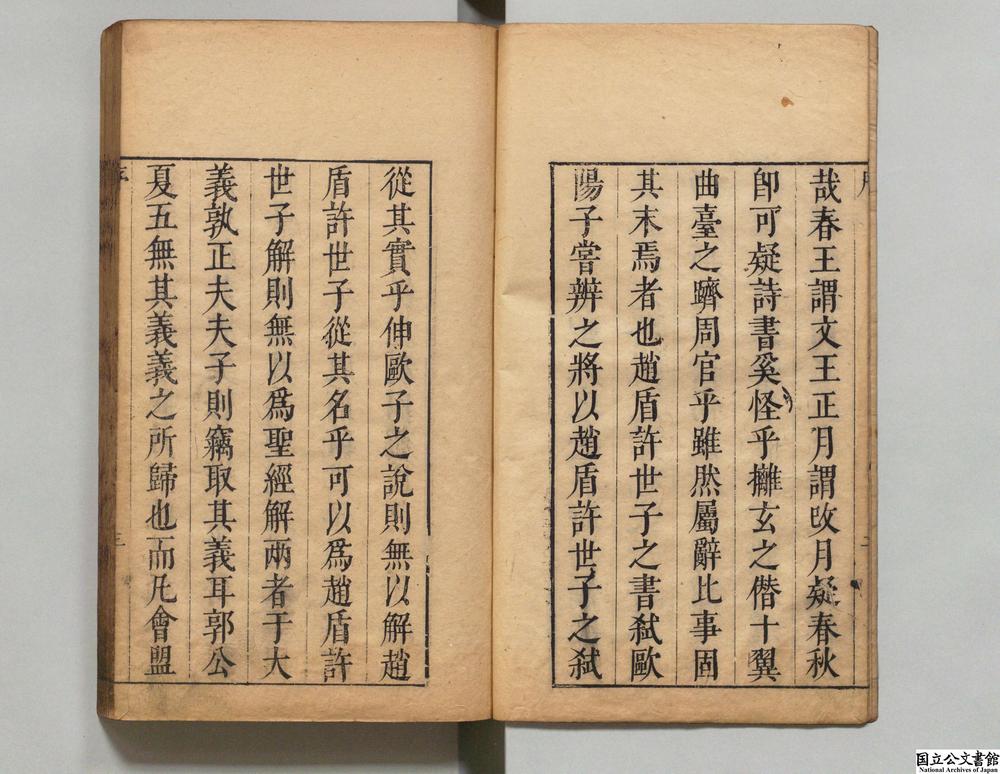 哉春王謂文王正月謂攺月疑春秋
卽可疑詩書奚怪乎擬玄之僭十翼
曲臺之躋周官乎雖然屬辭比事固
其末焉者也趙盾許世子之書弑歐
陽子嘗辨之將以趙盾許世子之弑
從其實乎伸歐子之說則無以解趙
盾許世子從其名乎可以爲趙盾許
世子解則無以爲聖經解兩者于大
義孰正夫夫子則竊取其義耳郭公
夏五無其義義之所歸也而凡會盟
序
三
国立公文書館
National Archives of Japan